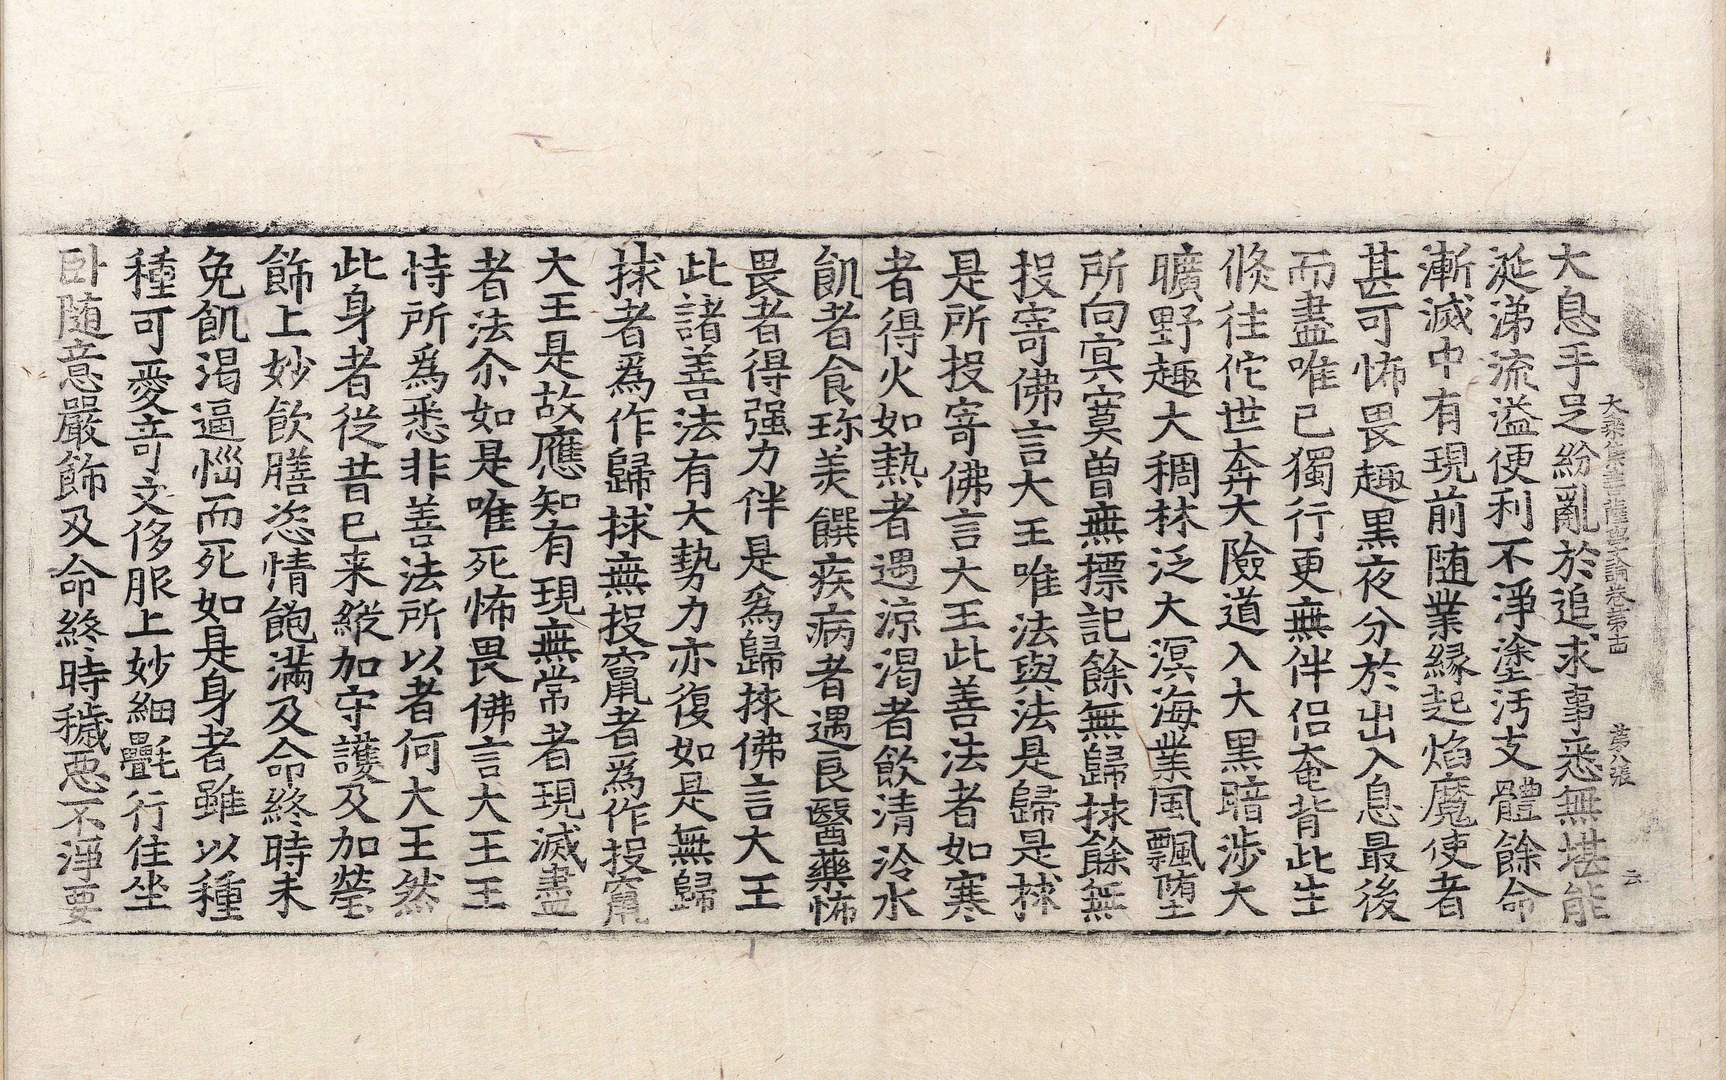 大乘集菩薩學論卷第十四 第八張 云
大息手足紛亂於追求事悉無堪能
涎涕流溢便利不淨塗汚支體餘命
漸滅中有現前随業緣起焰魔使者
甚可怖畏趣黑夜分於出入息最後
而盡唯已獨行更無伴侣奄背此生
倐往佗世大奔大險道入大黑暗涉大
曠野趣大稠林泛大溟海業風飄墮
所向㝠寞曽無摽記餘無歸捄餘無
投寄佛言大王唯法與法是歸是捄
是所投寄佛言大王此善法者如寒
者得火如熱者遇涼渴者飲清冷水
飢者食珎羙饌疾病者遇良醫藥怖
畏者得强力伴是爲歸捄佛言大王
此諸善法有大勢力亦復如是無歸
捄者爲作歸捄無投竄者爲作投竄
大王是故應知有現無常者現滅盡
者法尒如是唯死怖畏佛言大王王
恃所爲悉非善法所以者何大王然
此身者從昔已来縱加守護及加瑩
飾上妙飲膳恣情飽滿及命終時未
免飢渴逼惱而死如是身者雖以種
種可愛竒文侈服上妙細㲲行住坐
卧随意嚴飾及命終時穢惡不淨要